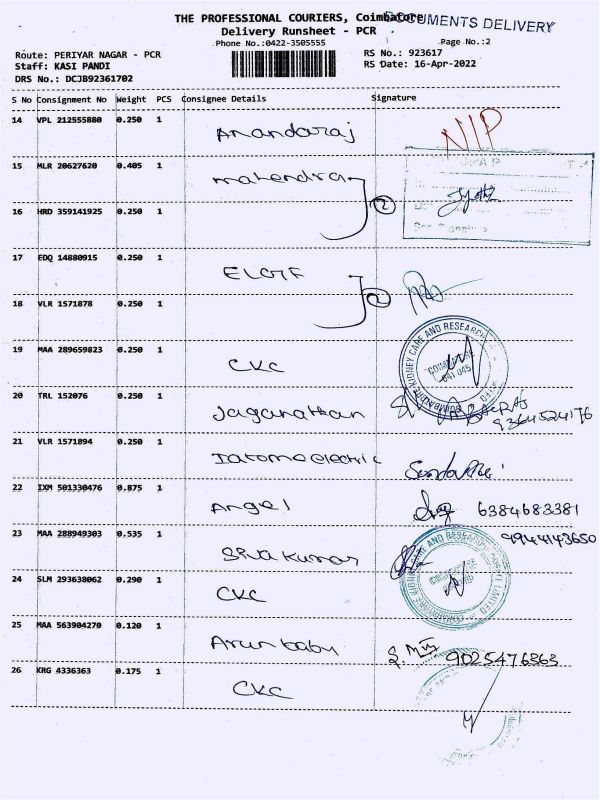 THE PROFESSIONAL COURIERS, Coimbatore
DOCUMENTS DELIVERY
Delivery Runsheet - PCR
Phone No.:0422-3505555
Page No.:2
Route: PERIYAR NAGAR - PCR
RS No.: 923617
Staff: KASI PANDI
RS Date: 16-Apr-2022
DRS No.: DCJB92361702
S No Consignment No Weight PCS Consignee Details Signature
14 VPL 212555880 0.250 1 Anandaraj NIP
15 MLR 20627620 0.405 1 Mahendra
Jyothi
16 HRD 359141925 0.250 1 2
17 EDQ 14880915 0.250 1 ELGIF
18 VLR 1571878 0.250 1 2
COIMBATORE KIDNEY CARE AND RESEARCH
COIMBATORE
641 045
19 MAA 289659823 0.250 1 CKC
20 TRL 152076 0.250 1 Jaganathan
9364524176
21 VLR 1571894 0.250 1 Iatome electric
22 IXM 501330476 0.875 1 Angel 6384683381
23 MAA 288949303 0.535 1 Siva kumar 9944143650
24 SLM 293638062 0.290 1 CKC
25 MAA 563904270 0.120 1 Arun babu 9025476363
26 KRG 4336363 0.175 1 CKC